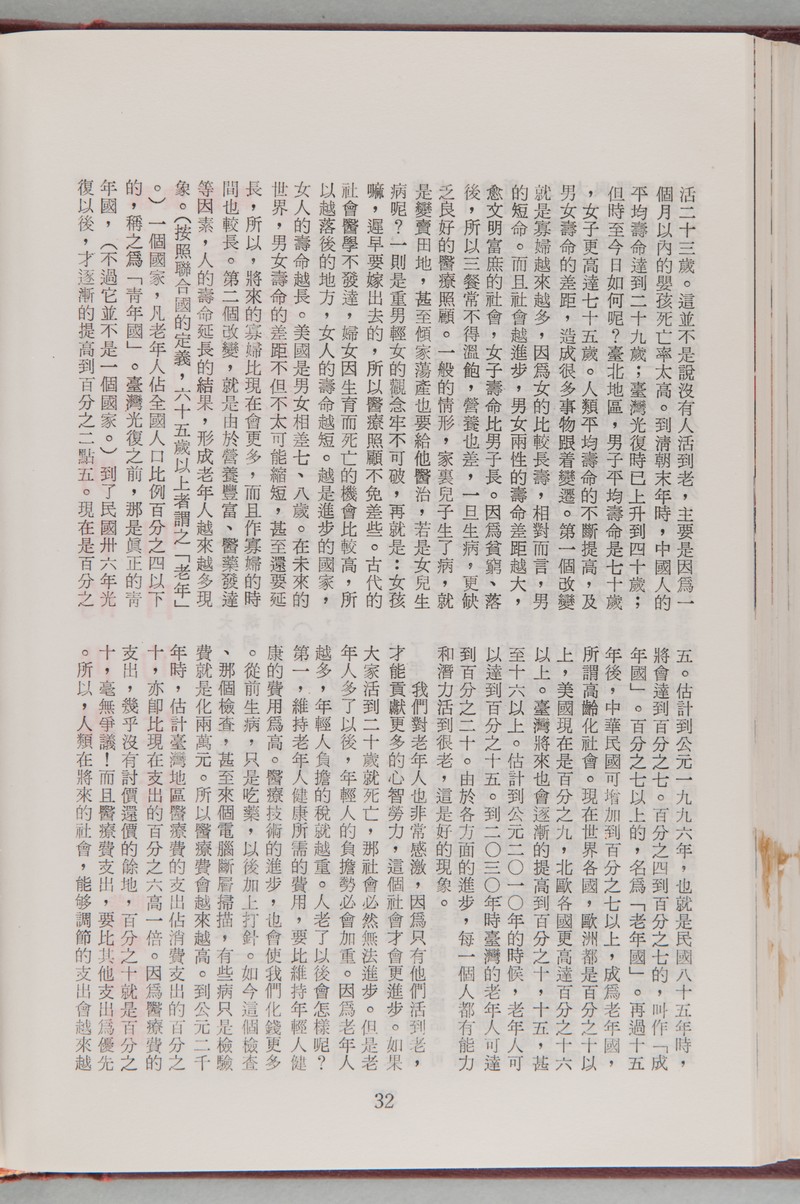 活二十三歲。這並不是說沒有人活到老，主要是因爲一
個月以內的嬰孩死亡率太高。到清朝末年時，中國人的
平均壽命達到二十九歲；臺灣光復時已上升到四十歲；
但時至今日如何呢？臺北地區，男子平均壽命是七十歲
，女子更高達七十五歲。人類平均壽命的不斷提高，及
男女壽命的差距，造成很多事物跟着變遷。第一個改變
就是寡婦越來越多，因爲女的比較長壽，相對而言，男
的短命。而且社會越進步，男女兩性的壽命差距越大，
愈文明富庶的社會，女子壽命比男子長。因爲貧窮、落
後，所以三餐常不得溫飽，營養也差，一旦生病，更缺
乏良好的醫療照顧。一般的情形，家裏兒子生了病，就
是變賣田地，甚至傾家蕩產也要給他醫治，若是女兒生
病呢？一則是重男輕女的觀念牢不可破，再就是：女孩
嘛，遲早要嫁出去的，所以醫療照顧不免差些。古代的
社會醫學不發達，婦女因生育而死亡的機會比較高，所
以越落後的地方，女人的壽命越短。越是進步的國家，
女人的壽命越長。美國是男女相差七、八歲。在未來的
世界，男女壽命的差距不但不太可能縮短，甚至還要延
長，所以，將來的寡婦比現在會更多，而且作寡婦的時
間也較長。第二個改變，就是由於營養豐富、醫藥發達
等因素，人的壽命延長的結果，形成老年人越來越多現
象。（按照聯合國的定義，六十五歲以上者謂之「老年」
。）一個國家，凡老年人佔全國人口比例百分之四以下
的，稱之爲「靑年國」。臺灣光復之前，那是眞正的靑
年國，（不過它並不是一個國家。）到了民國卅六年光
復以後，才逐漸的提高到百分之二點五。現在是百分之
五。估計到公元一九九六年，也就是民國八十五年時，
將會達到百分之七。百分之四到百分之七的，叫作「成
年國」。百分之七以上的，名爲「老年國」。再過十五
年後，中華民國可增加到百分之七以上，成爲老年國，
所謂高齡化社會。現在世界各國，歐洲都是百分之十以
上，美國現在是百分之九，北歐各國更高達百分之十六
以上。臺灣將來也會逐漸的提高到百分之十，十五，甚
至十六以上。估計到公元二〇一〇年的時候，老年人可
以達到百分之十五。到二〇三〇年時臺灣的老年人可達
到百分之二十。由於各方面的進步，每一個人都有能力
和潛力活到很老，這是好的現象。
我們對老年人也非常感激，因爲只有他們活到老，
才能貢獻更多的心智勞力，這個社會才會更進步。如果
大家活到二十歲就死亡，那社會必然無法進步。但是老
年人多了以後，年輕人的負擔勢必會加重。因爲老年人
越多，年輕人負擔的稅就越重。人老了以後會怎樣呢？
第一，維持老年人健康所需的費用，要比維持年輕人健
康的費用爲高。醫療技術的進步，也會使我們化錢更多
。從前生病，只是吃藥，以後加上打針。如今這個檢查
、那個檢查，甚至來個電腦斷層掃描，有些病只是檢驗
費就是化兩萬元。所以醫療費會越來越高。到公元二千
年時，估計臺灣地區醫療費的支出佔消費支出的百分之
十，亦卽比現在支出的百分之六高一倍。因爲醫療費的
支出，幾乎沒有討價還價的餘地，百分之十就是百分之
十，毫無爭議！而且醫療費支出，要比其他支出爲優先
。所以，人類在將來的社會，能够調節的支出會越來越
32